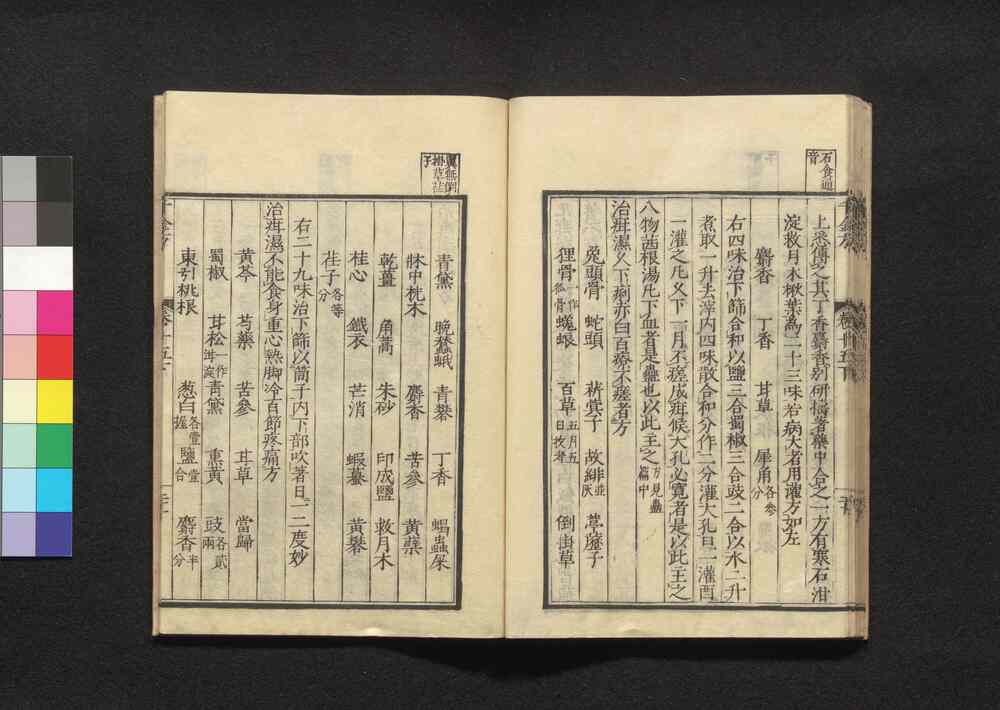 石食
音
上悉傳之其丁香麝香別研擣著藥中合之一方有寒石泔
淀救月木楸葉爲二十三味若病大者用灌方如左
麝香 丁香 甘草 犀角各參分
右四味治下篩合和以鹽三合蜀椒三合豉二合以水二升
煮取一升去滓內四味散合和分作二分灌大孔旦一灌酉
一灌之凡久下一月不瘥成疳候大孔必寬者是以此主之
八物茜根湯凡下血者是蟲也以此主之方見蟲篇中
治疳濕久下痢赤白百療不瘥者方
兔頭骨 蛇頭 葶子 故緋並灰 葶藶子
狸骨一作狐骨 蜣蜋 百草五月五日收者 倒掛草
翼
掛草
子
青黛 晚蠶蛾 青礬 丁香 蝎蟲屎
牀中桃木 麝香 苦參 黃蘗
乾薑 角蒿 朱砂 印成鹽 救月木
桂心 鐵衣 芒消 蝦蟇 黃礬
荏子各等分
右二十九味治下篩以筒子內下部吹著日一二度妙
治疳濕不能食身重心熱脚冷百節疼痛方
黃芩 芍藥 苦參 甘草 當歸
蜀椒 甘松一作泔淀 青黛 熏黃 豉各貳兩
東引桃根 葱白各壹握 鹽壹合 麝香半分